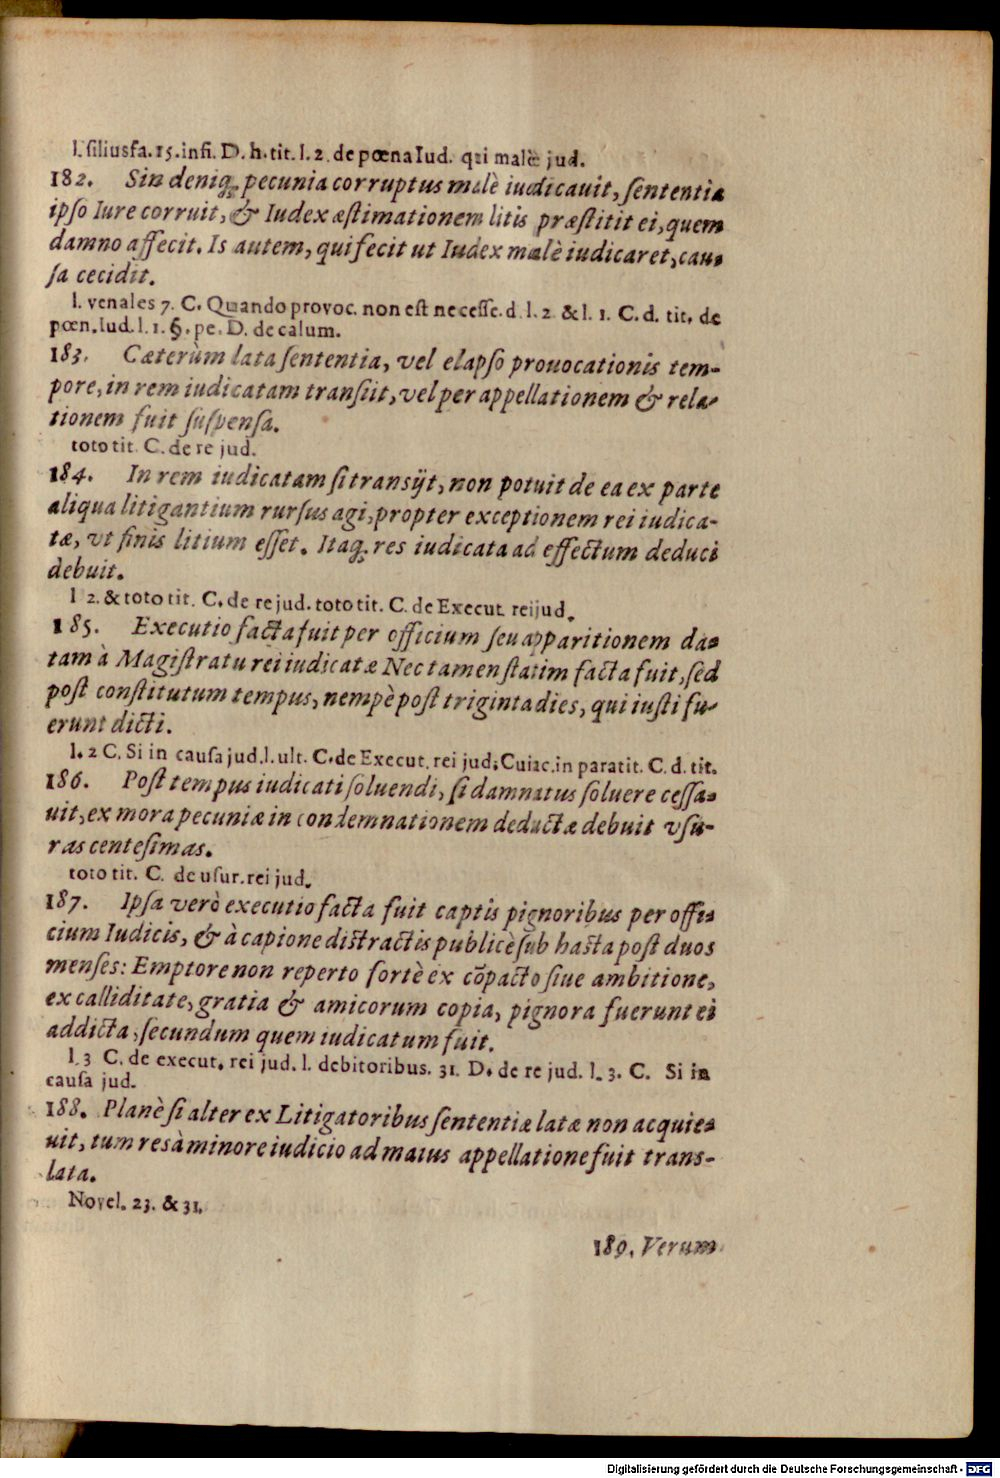 l. filiusfa. 15. in fi. D. h. tit. l. 2. de pœna Iud. qui malè jud.
182. Sin deniq; pecunia corruptus malè iudicauit, sententia
ipso Iure corruit, & Iudex æstimationem litis præstitit ei, quem
damno affecit. Is autem, qui fecit ut Iudex malè iudicaret, cau-
sa cecidit.
l. venales 7. C. Quando provoc. non est necesse. d. l. 2. & l. 1. C. d. tit. de
pœn. Iud. l. 1. §. pe. D. de calum.
183. Cæterùm lata sententia, vel elapso prouocationis tem-
pore, in rem iudicatam transiit, vel per appellationem & rela-
tionem fuit suspensa.
toto tit. C. de re jud.
184. In rem iudicatam si transijt, non potuit de ea ex parte
aliqua litigantium rursus agi, propter exceptionem rei iudica-
tæ, vt finis litium esset. Itaq; res iudicata ad effectum deduci
debuit.
l 2. & toto tit. C. de re jud. toto tit. C. de Execut. rei jud.
185. Executio facta fuit per officium seu apparitionem da-
tam à Magistratu rei iudicatæ Nec tamen statim facta fuit, sed
post constitutum tempus, nempè post triginta dies, qui iusti fu-
erunt dicti.
l. 2 C. Si in causa jud. l. ult. C. de Execut. rei jud; Cuiac. in paratit. C. d. tit.
186. Post tempus iudicati soluendi, si damnatus soluere cessa-
uit, ex mora pecuniæ in condemnationem deductæ debuit vsu-
ras centesimas.
toto tit. C. de usur. rei jud.
187. Ipsa verò executio facta fuit captis pignoribus per offi-
cium Iudicis, & à capione distractis publicè sub hasta post duos
menses: Emptore non reperto fortè ex cõpacto siue ambitione,
ex calliditate, gratia & amicorum copia, pignora fuerunt ei
addicta, secundum quem iudicatum fuit.
l. 3 C. de execut. rei jud. l. debitoribus. 31. D. de re jud. l. 3. C. Si in
causa jud.
188. Planè si alter ex Litigatoribus sententiæ latæ non acquie-
uit, tum res à minore iudicio ad maius appellatione fuit trans-
lata.
Novel. 23. & 31.
189. Verum
Digitalisierung gefördert durch die Deutsche Forschungsgemeinschaft - DFG